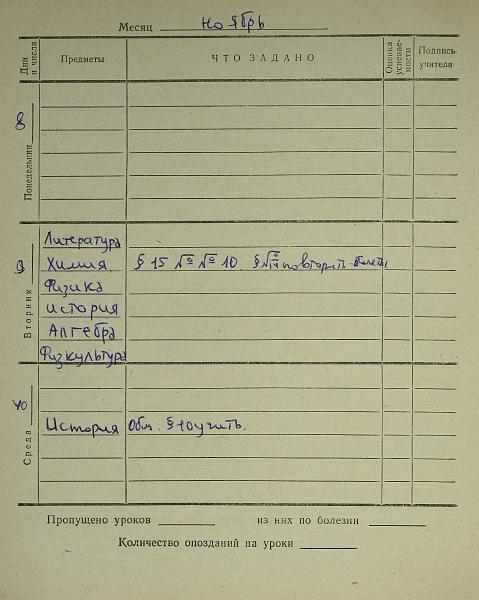 Месяц ноябрь
Дни и числа Предметы ЧТО ЗАДАНО Оценка успеваемости Подпись учителя
Понедельник 8
Вторник 9
Литература
Химия § 15 № № 10 § повторить билеты
Физика
история
Алгебра
Физкультура
Среда 10
История Обяз. § 10 учить.
Пропущено уроков из них по болезни
Количество опозданий на уроки